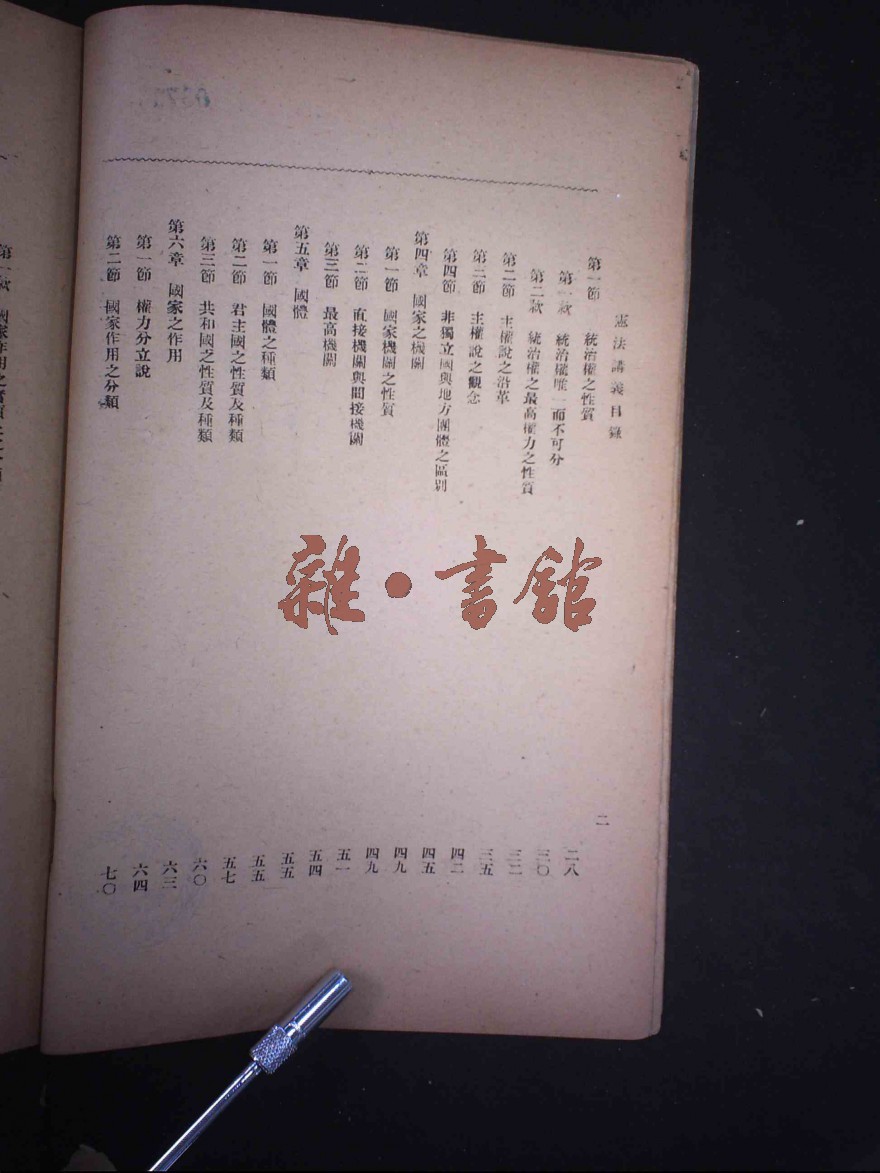 憲法講義目錄
二
第一節 統治權之性質 二八
第一款 統治權唯一而不可分 三〇
第二款 統治權之最高權力之性質 三二
第二節 主權說之沿革 三五
第三節 主權說之觀念 四二
第四節 非獨立國與地方團體之區別 四五
第四章 國家之機關 四九
第一節 國家機關之性質 四九
第二節 直接機關與間接機關 五一
第三節 最高機關 五四
第五章 國體 五五
第一節 國體之種類 五五
第二節 君主國之性質及種類 五七
第三節 共和國之性質及種類 六〇
第六章 國家之作用 六三
第一節 權力分立說 六四
第二節 國家作用之分類 七〇
雜·書館